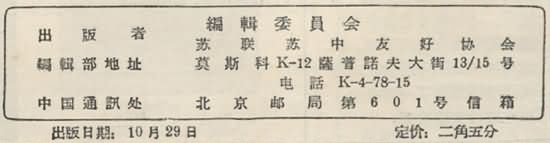 編輯委員会
出版者
苏联苏中友好协会
編輯部地址 莫斯科K-12薩普諾夫大街13/15号
电話 K-4-78-15
中国通訊处 北京邮局第601号信箱
出版日期: 10月29日 定价: 二角五分